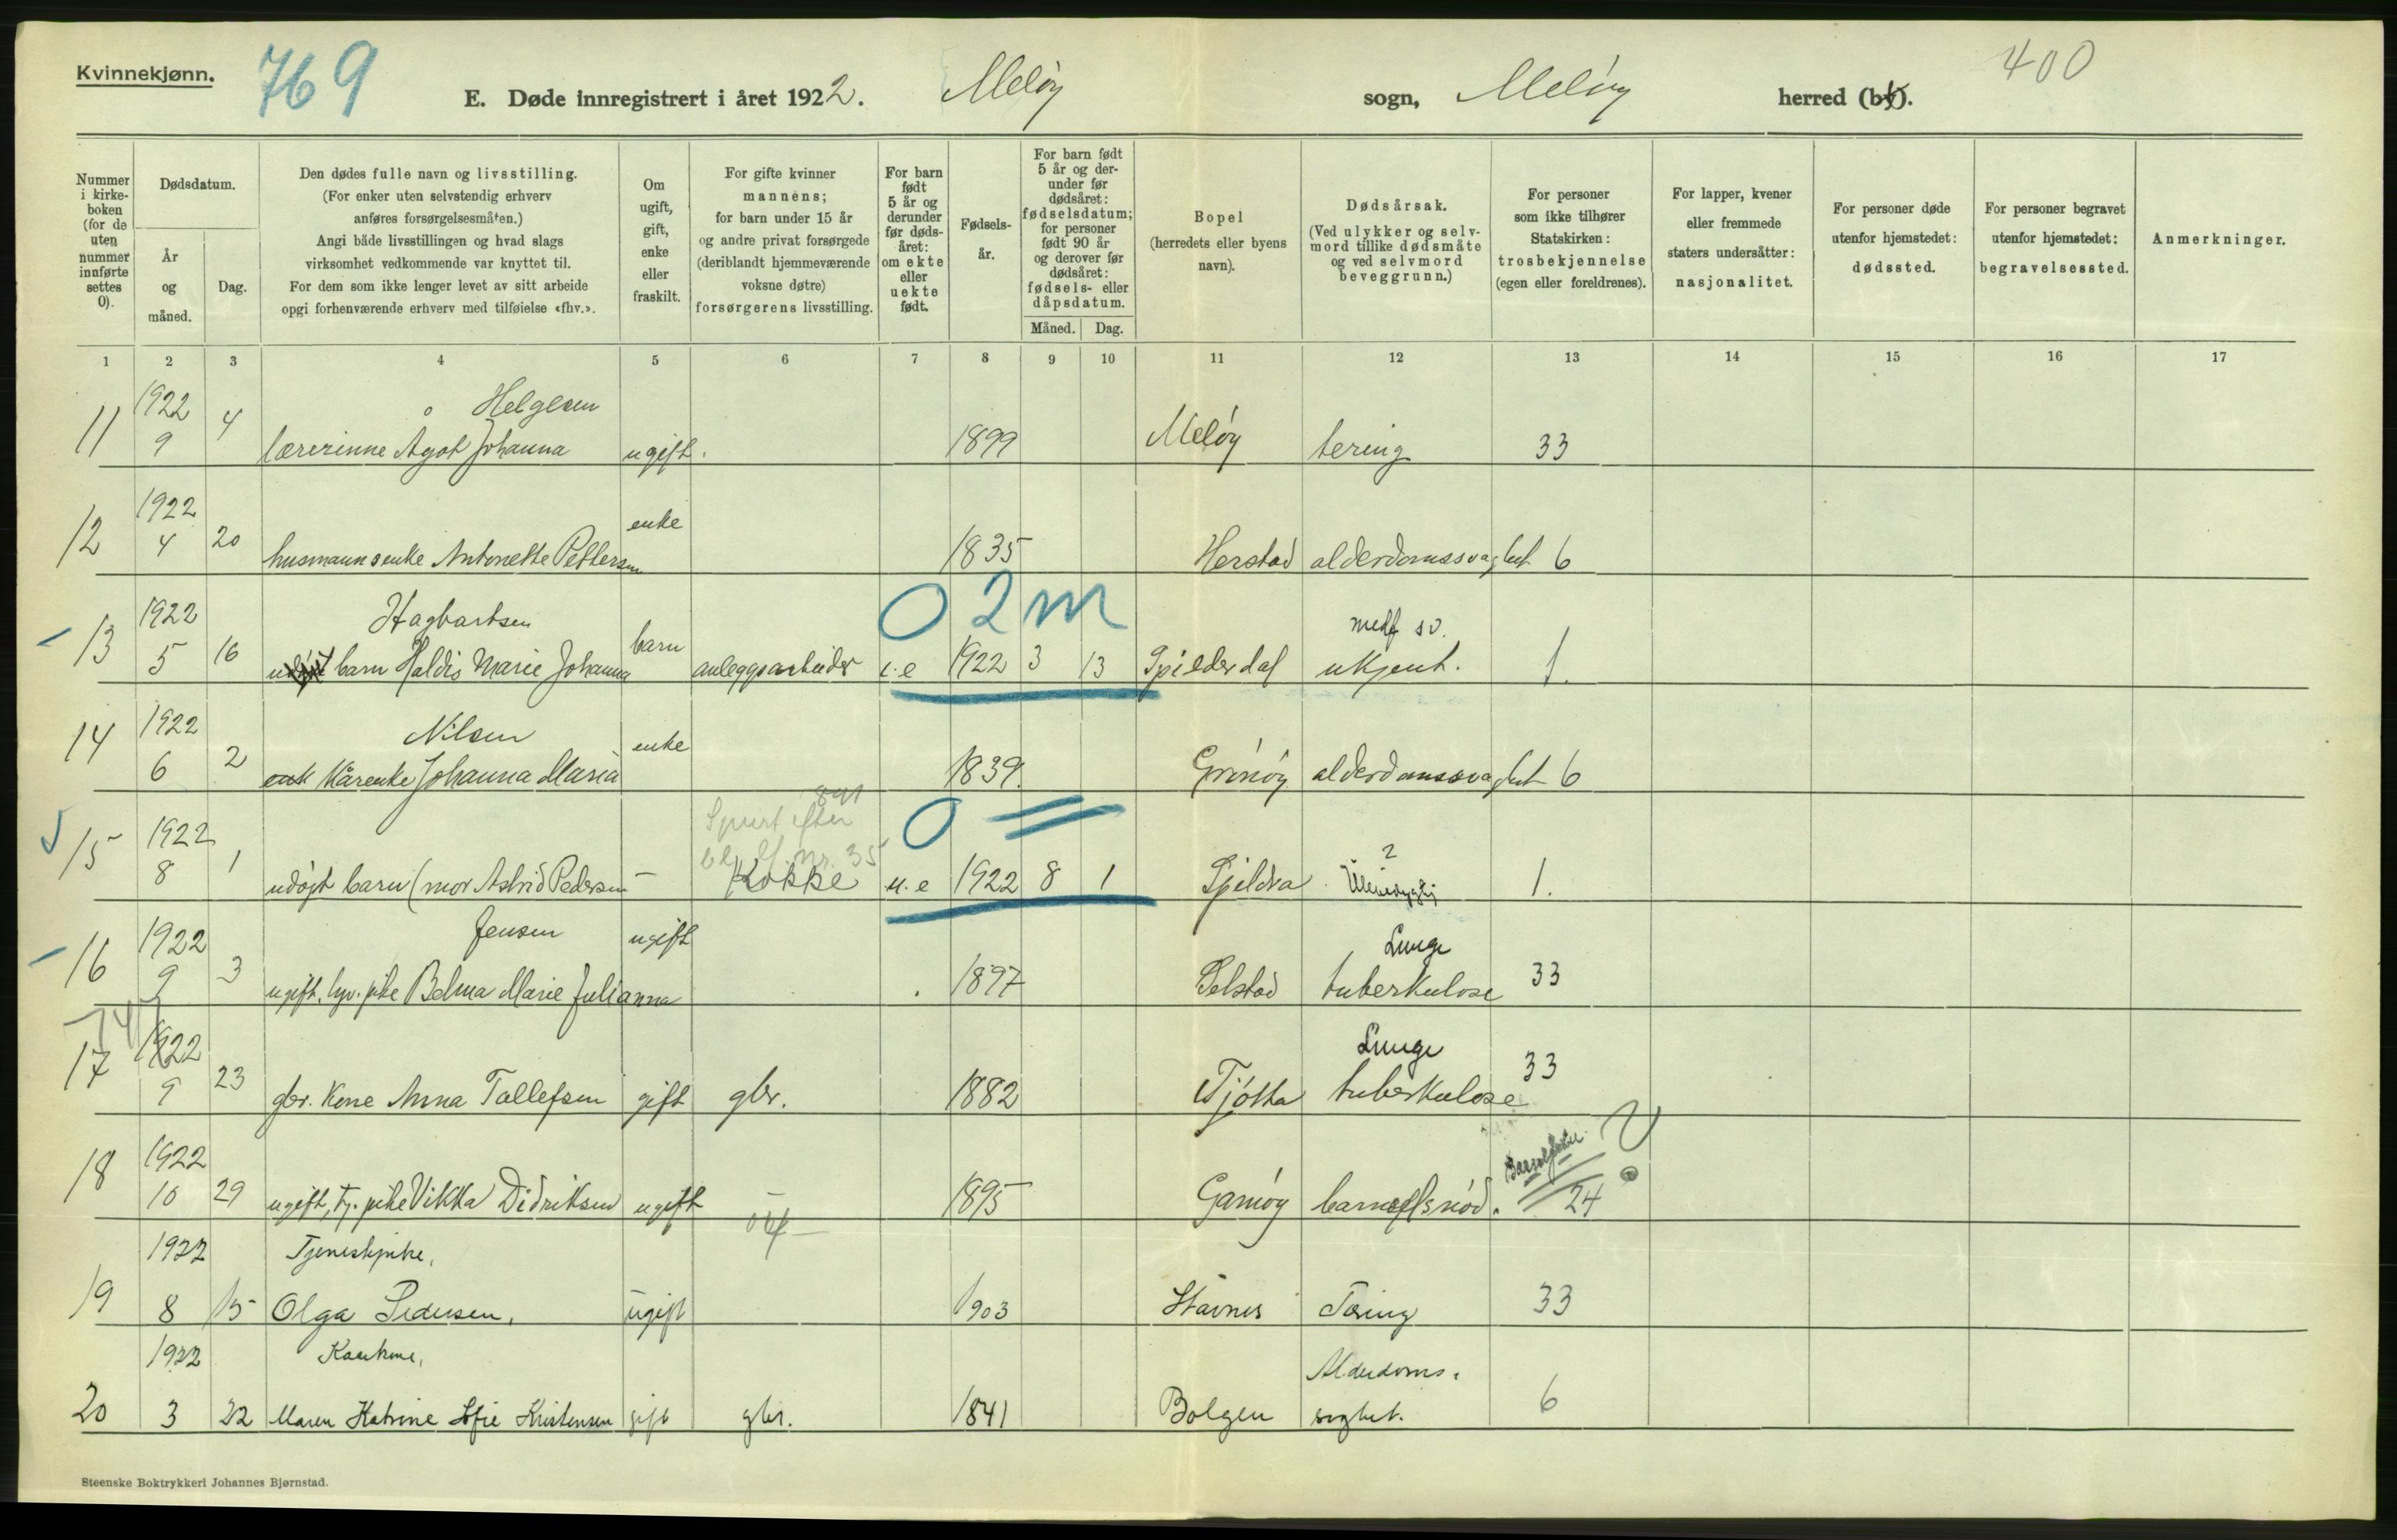 Kvinnekjønn.
769
E. Døde innregistrert i året 1922. Meløy sogn, Meløy herred (by).
400
Nummer i kirkeboken (for de uten nummer innførte settes 0).
Dødsdatum.
År og måned.
Dag.
Den dødes fulle navn og livsstilling.
(For enker uten selvstendig erhverv
anføres forsørgelsesmåten.)
Angi både livsstillingen og hvad slags
virksomhet vedkommende var knyttet til.
For dem som ikke lenger levet av sitt arbeide
opgi forhenværende erhverv med tilføielse «fhv.».
Om ugift, gift, enke eller fraskilt.
For gifte kvinner
mannens;
for barn under 15 år
og andre privat forsørgede
(deriblandt hjemmeværende
voksne døtre)
forsørgerens livsstilling.
For barn født 5 år og derunder før dødsåret: om ekte eller uekte født.
Fødselsår.
For barn født 5 år og derunder før dødsåret: fødselsdatum; for personer født 90 år og derover før dødsåret: fødsels- eller dåpsdatum.
Måned. Dag.
Bopel
(herredets eller byens
navn).
Dødsårsak.
(Ved ulykker og selvmord tillike dødsmåte og ved selvmord beveggrunn.)
For personer
som ikke tilhører
Statskirken:
trosbekjennelse
(egen eller foreldrenes).
For lapper, kvener
eller fremmede
staters undersåtter:
nasjonalitet.
For personer døde
utenfor hjemstedet:
dødssted.
For personer begravet
utenfor hjemstedet:
begravelsessted.
Anmerkninger.
1 2 3 4 5 6 7 8 9 10 11 12 13 14 15 16 17
1922 Helgesen
11 9 4 lærerinne Ågot Johanna ugift. 1899 Meløy tering 33
1922 enke
12 4 20 husmannsenke Antonette Pettersen 1835 Herstad alderdomssvaghet 6
0 2 m
1922 Hagbartsen barn medf sv.
13 5 16 barn Haldis Marie Johanna anleggsarbeider e.e 1922 3 13 Spilderdal ukjent. 1.
1922 Nilsen enke
14 6 2 Kårenke Johanna Maria 1839. Grønøy alderdomssvaghet 6
891
Spurt efter 0 =
1922 nr. 35 2
15 8 1 udøpt barn (mor Astrid Pedersen – Kokke u.e 1922 8 1 1.
1922 Jensen ugift Lunge
16 9 3 ugift. pike Marie Julianna 1897 Selstad tuberkulose 33
1922 Lunge
17 9 23 gbr. kone Anna Tollefsen gift gbr. 1882 Tjøtta tuberkulose 33
1922 Barselfeber ?
18 10 29 ugift, tj. pike Vikka Didriksen ugift – 1895 Gamøy barnefsnød. 24
1922 Tjenestepike,
19 8 15 Olga Pedersen, ugift 1903 Støvnes Tæring 33
1922 Kaarkone, Alderdoms-
20 3 22 Maren Katrine Sofie Kristensen gift gbr. 1841 Bolgen svghet. 6
Steenske Boktrykkeri Johannes Bjørnstad.